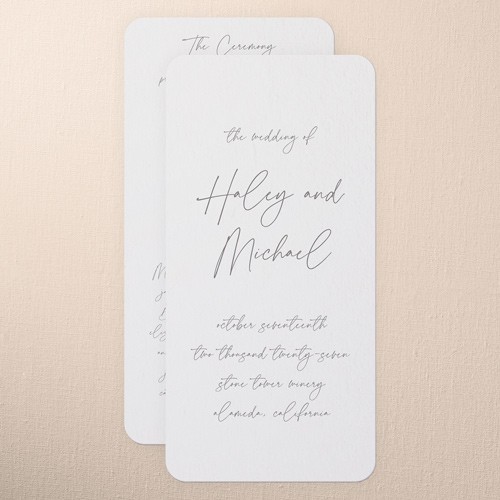 The Ceremony
the wedding of
Haley and
Michael
october seventeenth
two thousand twenty-seven
stone tower winery
alameda, california